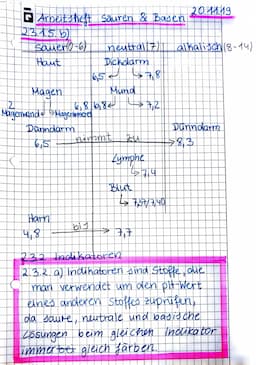 20.11.19
Arbeitsheft Säuren & Basen
2.3.1.5. b)
sauer(0-6) neutral(7) alkalisch (8-14)
Haut Dickdarm
6,5 7,8
Magen Mund
2 6,8 7,2
Magenmund Magenmund
Dünndarm Dünndarm
6,5 nimmt zu 8,3
Lymphe
7,4
Blut
Harn
4,8 bis 7,7
2.3.2 Indikatoren
2.3.2. a) Indikatoren sind Stoffe, die
man verwendet um den pH-Wert
eines anderen Stoffes zuprüfen,
da saure, neutrale und basische
Lösungen beim gleichen Indikator
immer gleich färben.